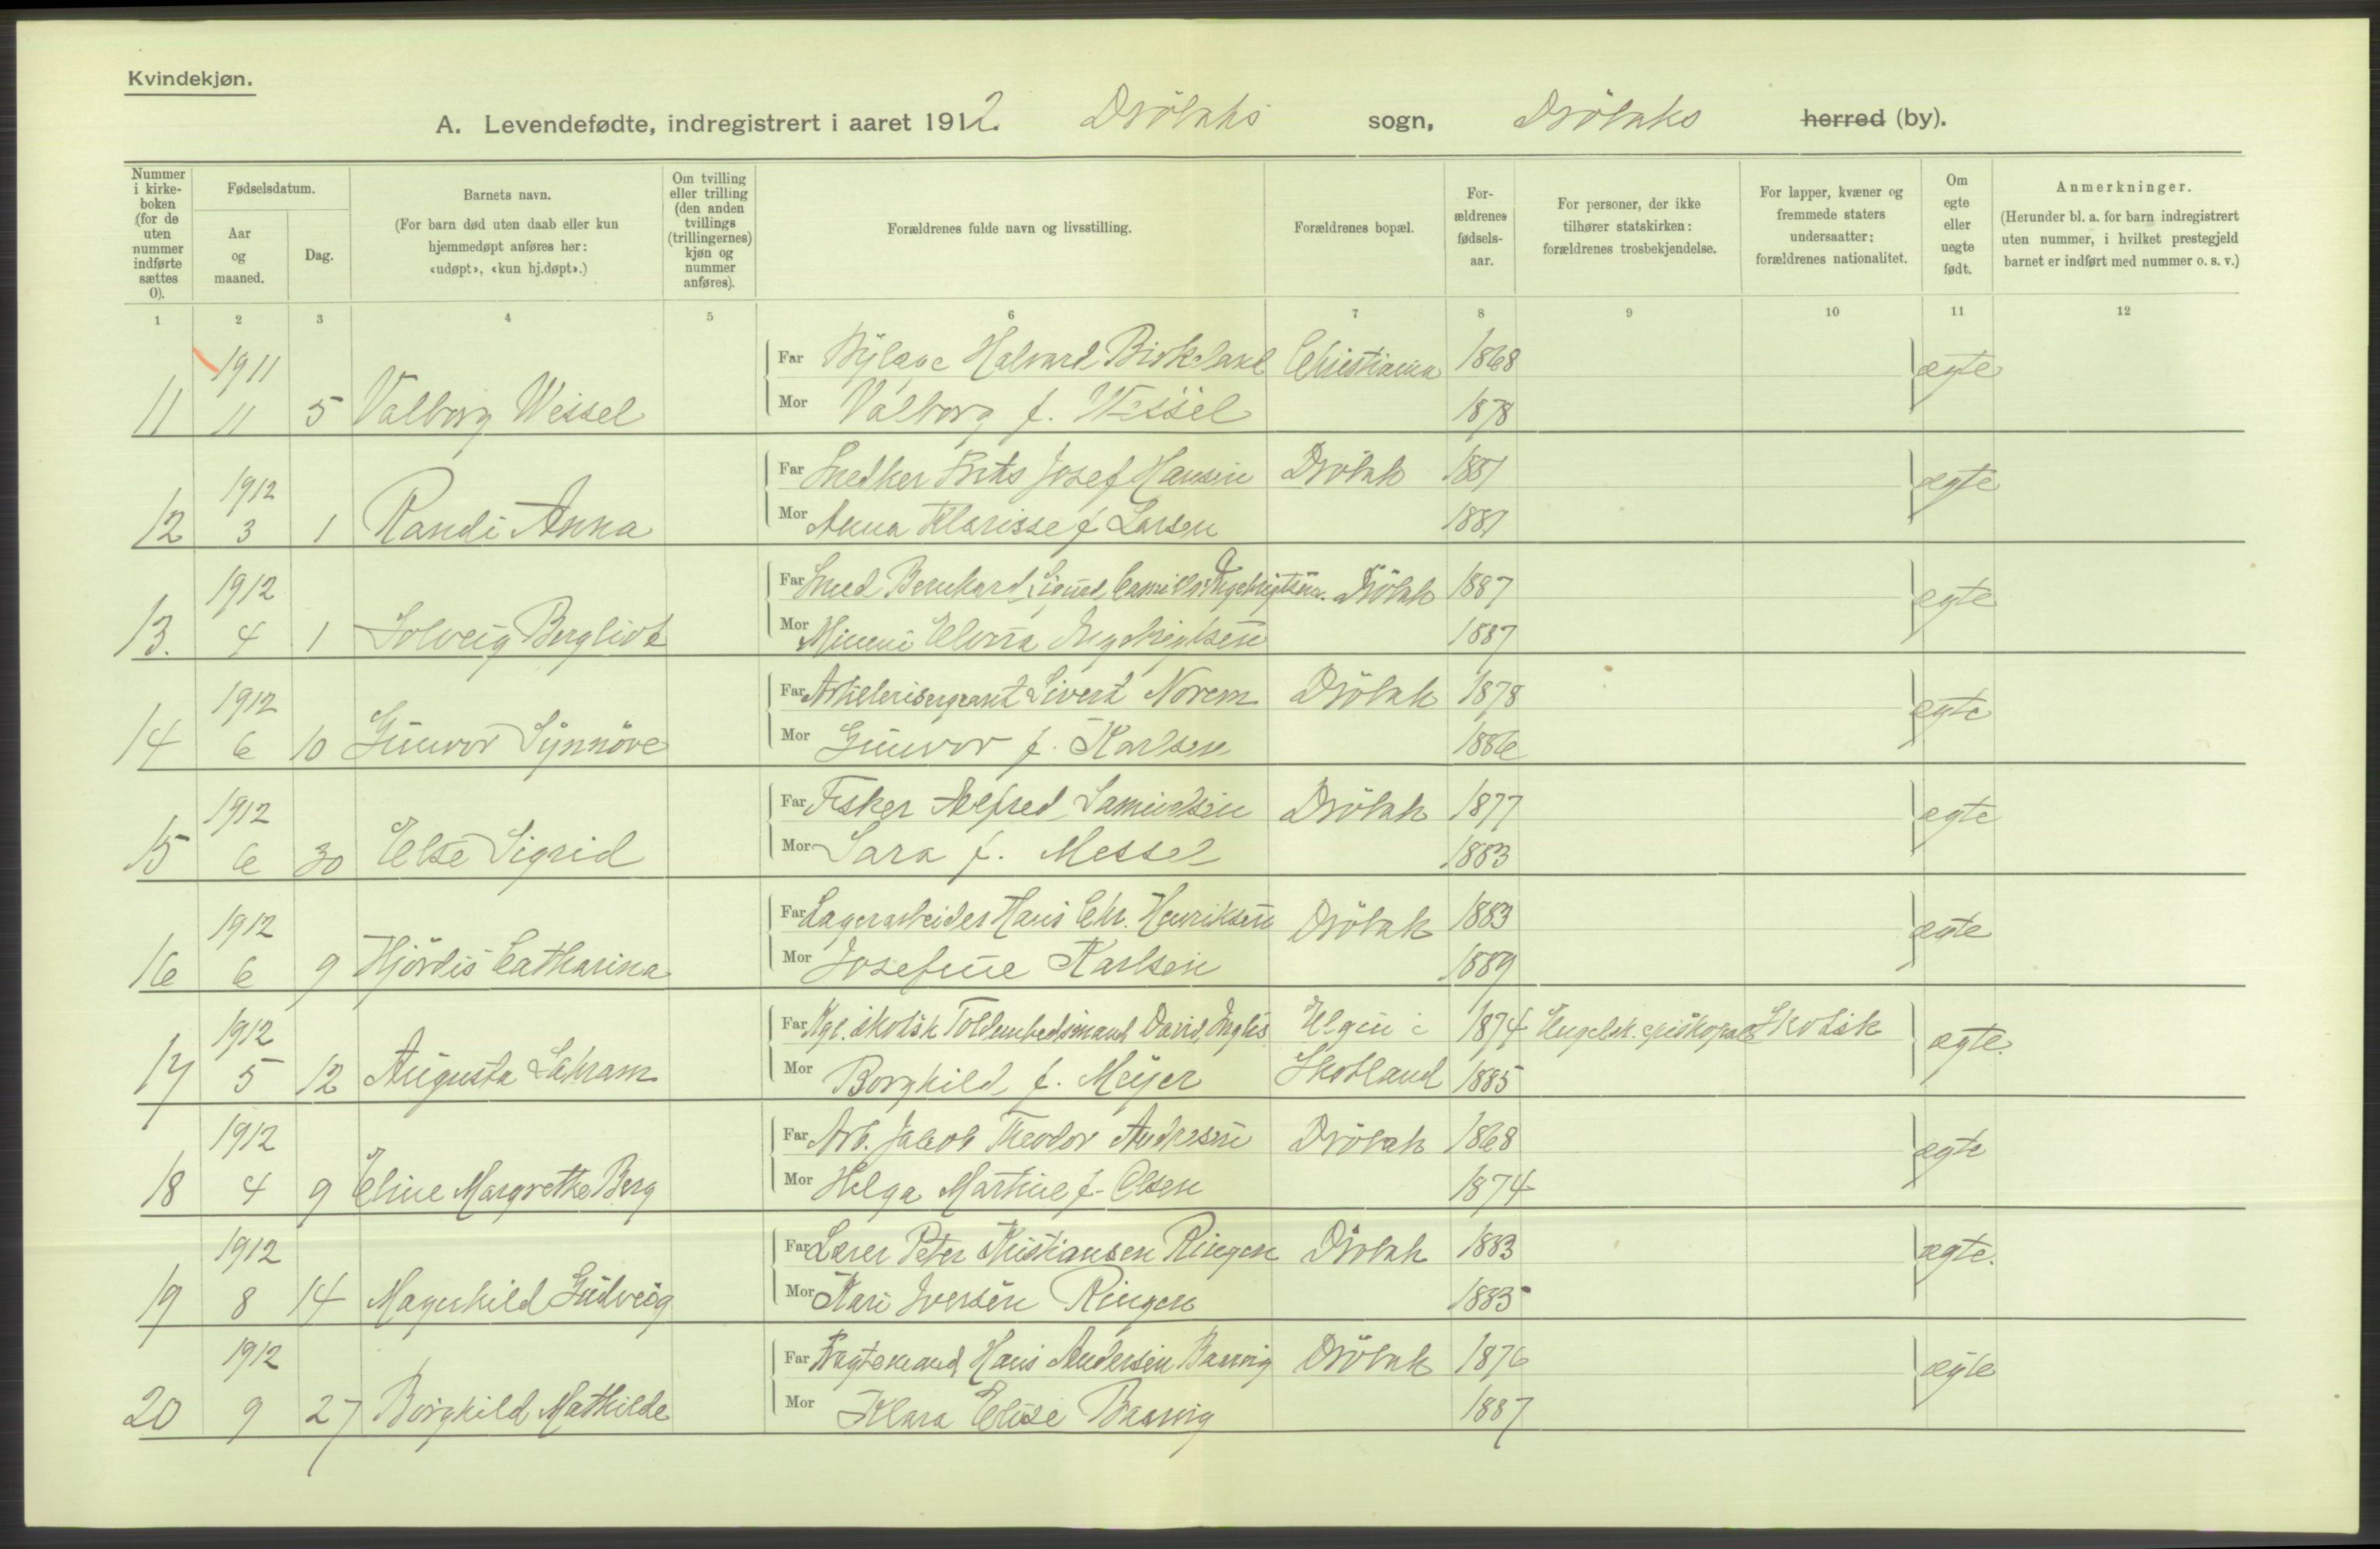 Kvindekjøn.
A. Levendefødte, indregistrert i aaret 1912. Dröbaks sogn, Dröbaks herred (by).
Nummer i kirke-boken (for de uten nummer indførte sættes 0).
Fødselsdatum.
Aar og maaned.
Dag.
Barnets navn.
(For barn død uten daab eller kun hjemmedøpt anføres her: «udøpt», «kun hj.døpt».)
Om tvilling eller trilling (den anden tvillings (trillingernes) kjøn og nummer anføres).
Forældrenes fulde navn og livsstilling.
Forældrenes bopæl.
For-ældrenes fødsels-aar.
For personer, der ikke tilhører statskirken: forældrenes trosbekjendelse.
For lapper, kvæner og fremmede staters undersaatter: forældrenes nationalitet.
Om egte eller uegte født.
Anmerkninger.
(Herunder bl. a. for barn indregistrert uten nummer, i hvilket prestegjeld barnet er indført med nummer o. s. v.)
1 2 3 4 5 6 7 8 9 10 11 12
1911 Far Halvard Birkeland Christiania 1868 ægte
11 11 5 Valborg Wessel Mor Valborg f. Wessel 1878
1912 Far Snedker Frits Josef Hansen Dröbak 1881 ægte
12 3 1 Randi Anna Mor Anna Klarisse f Larsen 1881
1912 Far Smed Bernhard Sigurd Camillo Engebrigtsen. Dröbak 1887 egte
13. 4 1 Solveig Bergliot Mor Minni Elvira Engebrigtsen 1887
1912 Far Artilerisergeant Sivert Norem Dröbak 1878 egte
14 6 10 Gunvor Synnöve Mor Gunvor f. Karlsen 1886
1912 Far Fisker Alfred Samuelsen Dröbak 1877 egte
15 6 30 Else Sigrid Mor Sara f. Messel 1883
1912 Far Lagerarbeider Hans Chr. Henriksen Dröbak 1883 egte
16 6 9 Hjördis Catharina Mor Josefine Karlsen 1889
1912 Far Kgl. skotsk Toldembedsmand David Inglis Elgin i 1874 Engelsk. episkopal Skotsk ægte.
17 5 12 Augusta Mor Borghild f. Meyer Skotland 1885
1912 Far Arb. Jakob Theodor Andersen Dröbak 1868 egte
18 4 9 Eline Margrethe Berg Mor Helga Martine f. Olsen 1874
1912 Far Lærer Peter Kristiansen Ringen Dröbak 1883 ægte.
19 8 14 Magnhild Gudveig Mor Kari Iversen Ringen 1883
1912 Far Fragtemand Hans Andersen Baarvig Dröbak 1876 ægte
20 9 27 Borghild Mathilde Mor Klara Elise Baarvig 1887